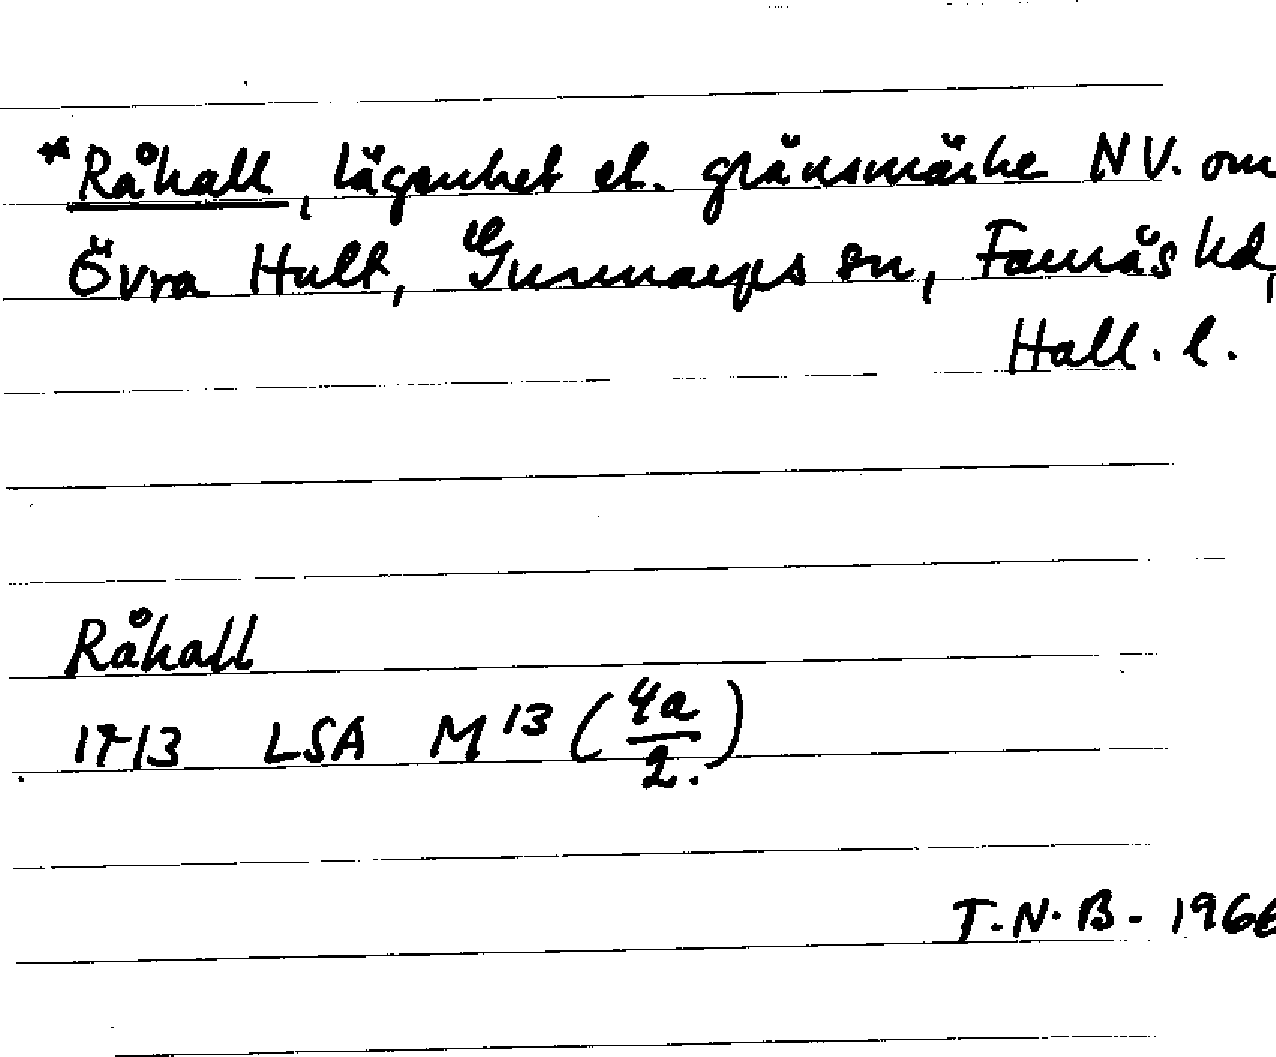 *Råhall, lägenhet el. gränsmärke NV. om
Övra Hult, Gunnarps sn, Faurås hd,
Hall. l.
Råhall
1713 LSA M 13 (4a/2.)
T.N.B. 1966